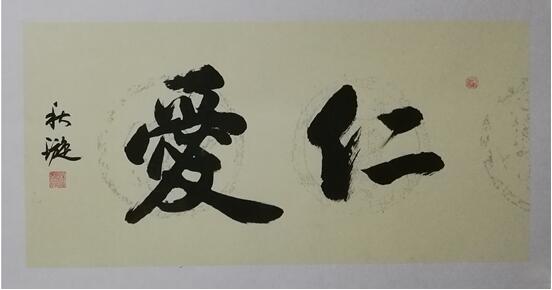 仁愛
秋漩